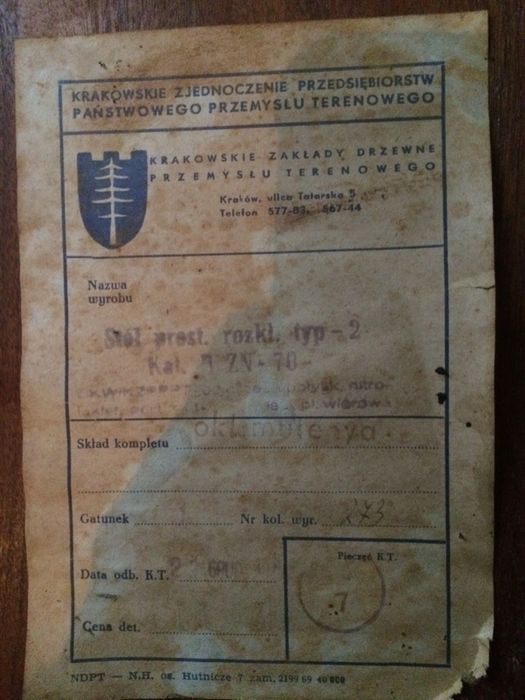 KRAKOWSKIE ZJEDNOCZENIE PRZEDSIĘBIORSTW
PAŃSTWOWEGO PRZEMYSŁU TERENOWEGO
KRAKOWSKIE ZAKŁADY DRZEWNE
PRZEMYSŁU TERENOWEGO
Kraków, ulica Tatarska 5
Telefon 577-83, 567-44
Nazwa
wyrobu
Stół prost. rozkł. typ-2
Kat. ZN-70
połysk, nitro-
okl. mutenya
Skład kompletu
Gatunek Nr kol. wyr. 273
Data odb. K.T. 2
Pieczęć K.T.
7
Cena det.
NDPT — N.H. os. Hutnicze 7 zam. 2199 69 40 000